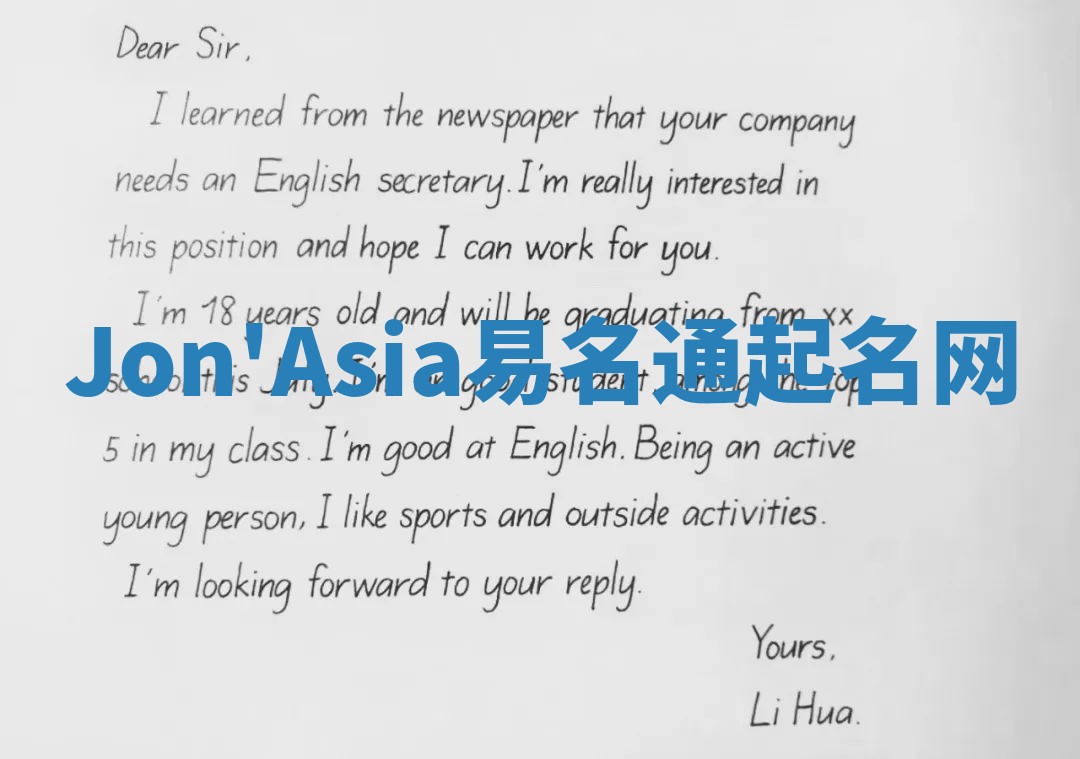 Dear Sir,
I learned from the newspaper that your company
needs an English secretary. I'm really interested in
this position and hope I can work for you.
I'm 18 years old and will be graduating from xx
Jon'Asia易名通起名网
school this July. I'm a good student, among the top
5 in my class. I'm good at English. Being an active
young person, I like sports and outside activities.
I'm looking forward to your reply.
Yours,
Li Hua.